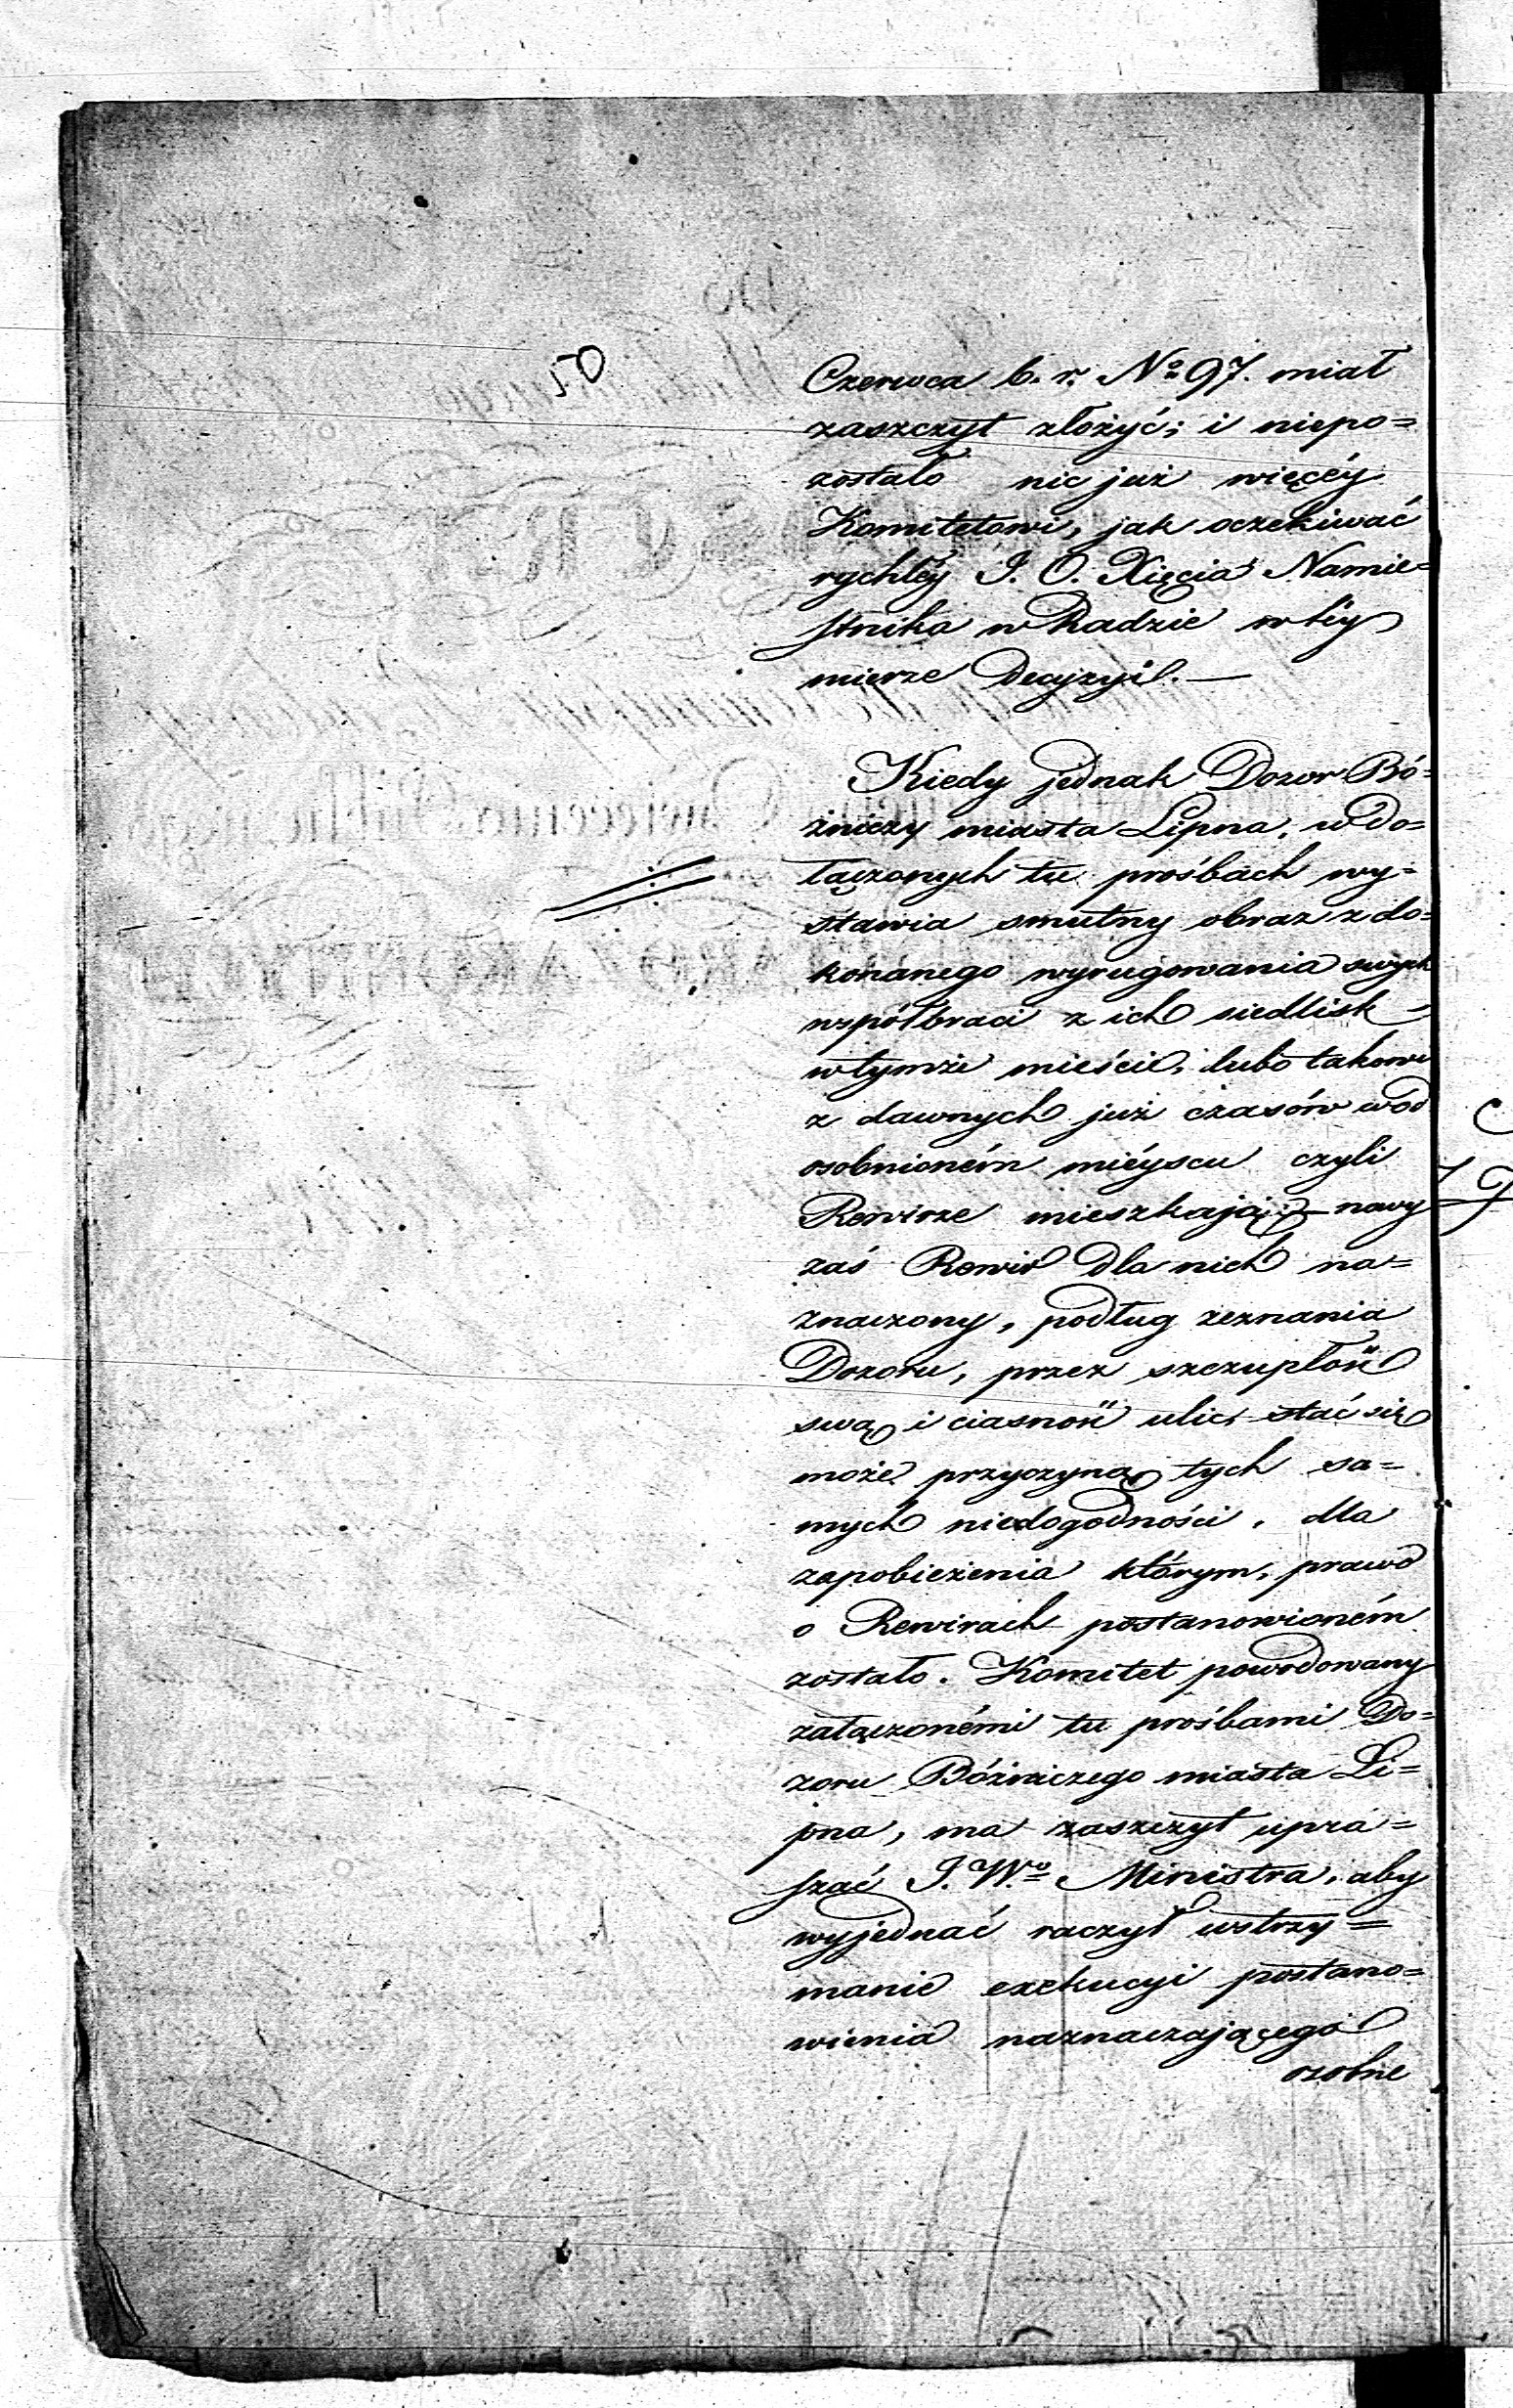 50
Czerwca b. r. No 97. miał
zaszczyt złożyć; i niepo=
zostało nic już więcéy
Komitetowi, jak oczekiwać
rychłéy J. O. Xięcia Namie=
stnika w Radzie w téy
mierze decyzyi. —
Kiedy jednak Dozor Bó=
żniczy miasta Lipna, w do=
łączonych tu prośbach wy=
stawia smutny obraz z do=
konanego wyrugowania swych
współbraci z ich siedlisk
w tymże mieście, lubo takowi
z dawnych już czasów w od
osobnioném miéyscu czyli
Rewirze mieszkają; nowy
zaś Rewir dla nich na=
znaczony, podług zeznania
Dozoru, przez szczupłość
swą i ciasność ulic, stać się
może przyczyną tych sa=
mych niedogodności, dla
zapobieżenia którym, prawo
o Rewirach postanowioném
zostało. Komitet powodowany
załączonémi tu prośbami Do=
zoru Bóżniczego miasta Li=
pna, ma zaszczyt upra=
szać J. Wo Ministra, aby
wyjednać raczył wstrzy=
manie exekucyi postano=
wienia naznaczającego
osobne